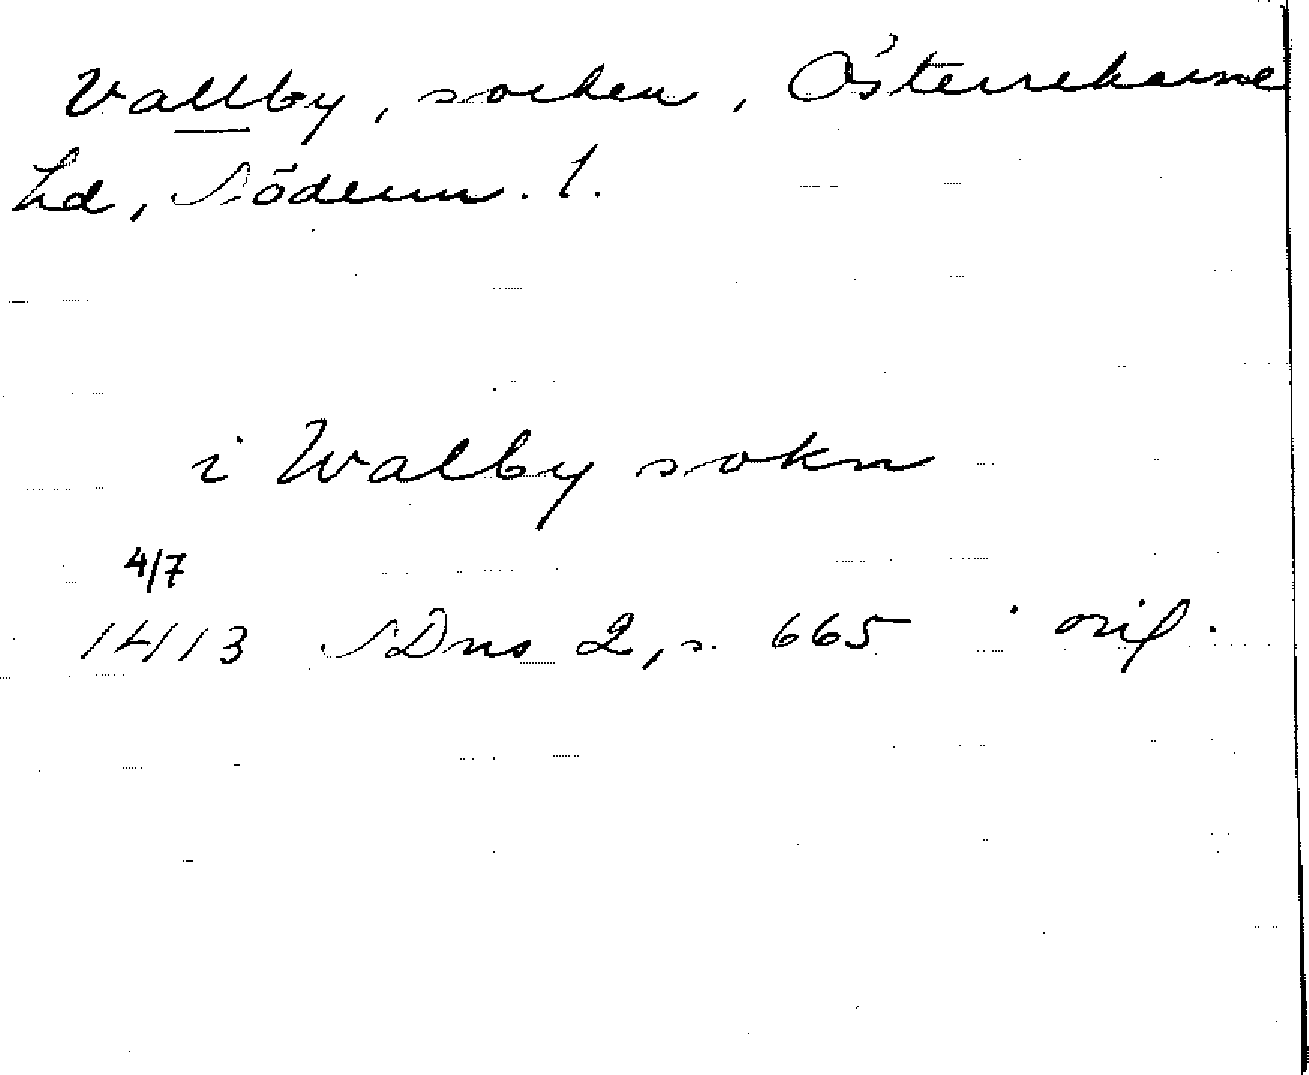 Vallby, socken, Österrekarne
hd, Söderm. l.
i Walby sokn
4/7
1413 SDns 2, s. 665 orig.